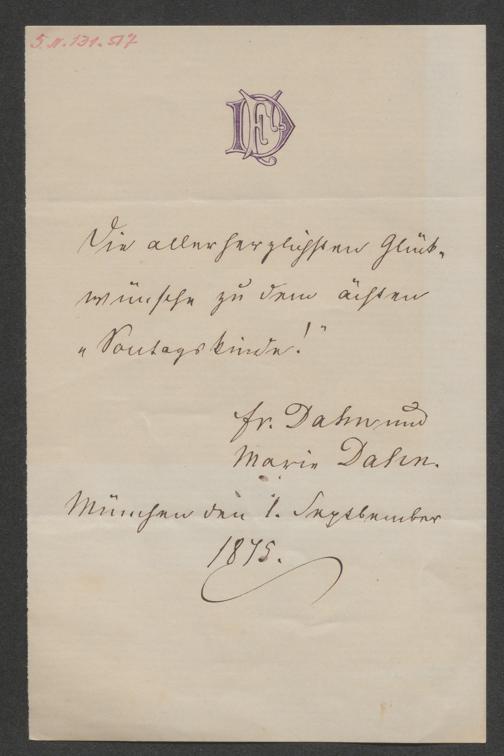 I. N. 131.517
FD
Die allerherzlichsten Glück-
wünsche zu dem ächten
„Sontagskinde!"
Fr. Dahn und
Marie Dahn.
München den 1. September
1875.